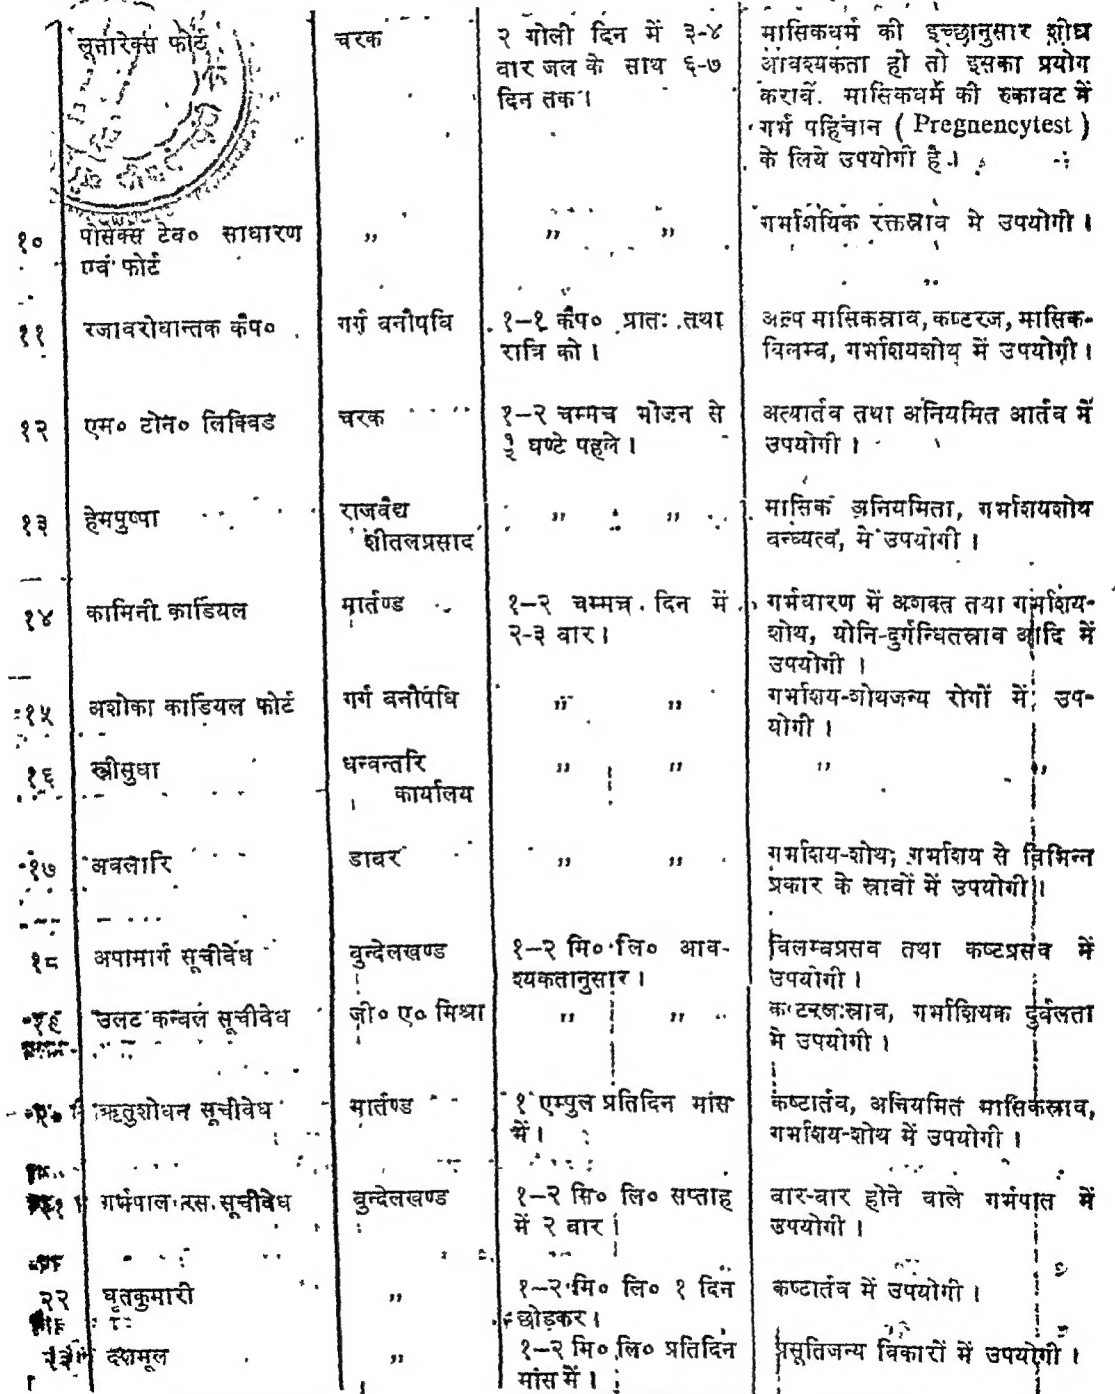 लूनारेक्स फोर्ट चरक २ गोली दिन में ३-४ मासिकधर्म की इच्छानुसार शीघ्र
वार जल के साथ ६-७ आवश्यकता हो तो इसका प्रयोग
दिन तक । करावें. मासिकधर्म की रुकावट में
गर्भ पहिचान ( Pregnencytest )
के लिये उपयोगी है ।
१० पोसेक्स टेव० साधारण ,, ,, ,, गर्भाशयिक रक्तस्राव मे उपयोगी ।
एवं फोर्ट
११ रजावरोधान्तक कैप० गर्ग वनौषधि १–१ कैप० प्रातः तथा अल्प मासिकस्राव, कष्टरज, मासिक-
रात्रि को । विलम्ब, गर्भाशयशोथ में उपयोगी ।
१२ एम० टोन० लिक्विड चरक १–२ चम्मच भोजन से अत्यार्तव तथा अनियमित आर्तव में
घण्टे पहले । उपयोगी ।
१३ हेमपुष्पा राजवैद्य ,, ,, मासिक अनियमिता, गर्भाशयशोथ
शीतलप्रसाद वन्ध्यत्व, मे उपयोगी ।
१४ कामिनी कार्डियल मार्तण्ड १–२ चम्मच दिन में गर्भधारण में अशक्त तथा गर्भाशय-
२-३ वार । शोथ, योनि-दुर्गन्धितस्राव आदि में
उपयोगी ।
१५ अशोका कार्डियल फोर्ट गर्ग वनौषधि ,, ,, गर्भाशय-शोथजन्य रोगों में उप-
योगी ।
१६ स्त्रीसुधा धन्वन्तरि ,, ,, ,, ,,
कार्यालय
१७ अवलारि डावर ,, ,, गर्भाशय-शोथ; गर्भाशय से विभिन्न
प्रकार के स्रावों में उपयोगी ।
१८ अपामार्ग सूचीवेध वुन्देलखण्ड १–२ मि० लि० आव- विलम्बप्रसव तथा कष्टप्रसव में
श्यकतानुसार । उपयोगी ।
१९ उलट कन्वल सूचीवेध जी० ए० मिश्रा ,, ,, कष्टरजःस्राव, गर्भाशयिक दुर्वलता
मे उपयोगी ।
ऋतुशोधन सूचीवेध मार्तण्ड १ एम्पुल प्रतिदिन मांस कष्टार्तव, अनियमित मासिकस्राव,
में । गर्भाशय-शोथ में उपयोगी ।
गर्भपाल रस सूचीवेध वुन्देलखण्ड १–२ मि० लि० सप्ताह वार-वार होने वाले गर्भपात में
में २ वार । उपयोगी ।
२२ घृतकुमारी ,, १–२ मि० लि० १ दिन कष्टार्तव में उपयोगी ।
छोड़कर ।
२३ दशमूल ,, १–२ मि० लि० प्रतिदिन प्रसूतिजन्य विकारों में उपयोगी ।
मांस में ।